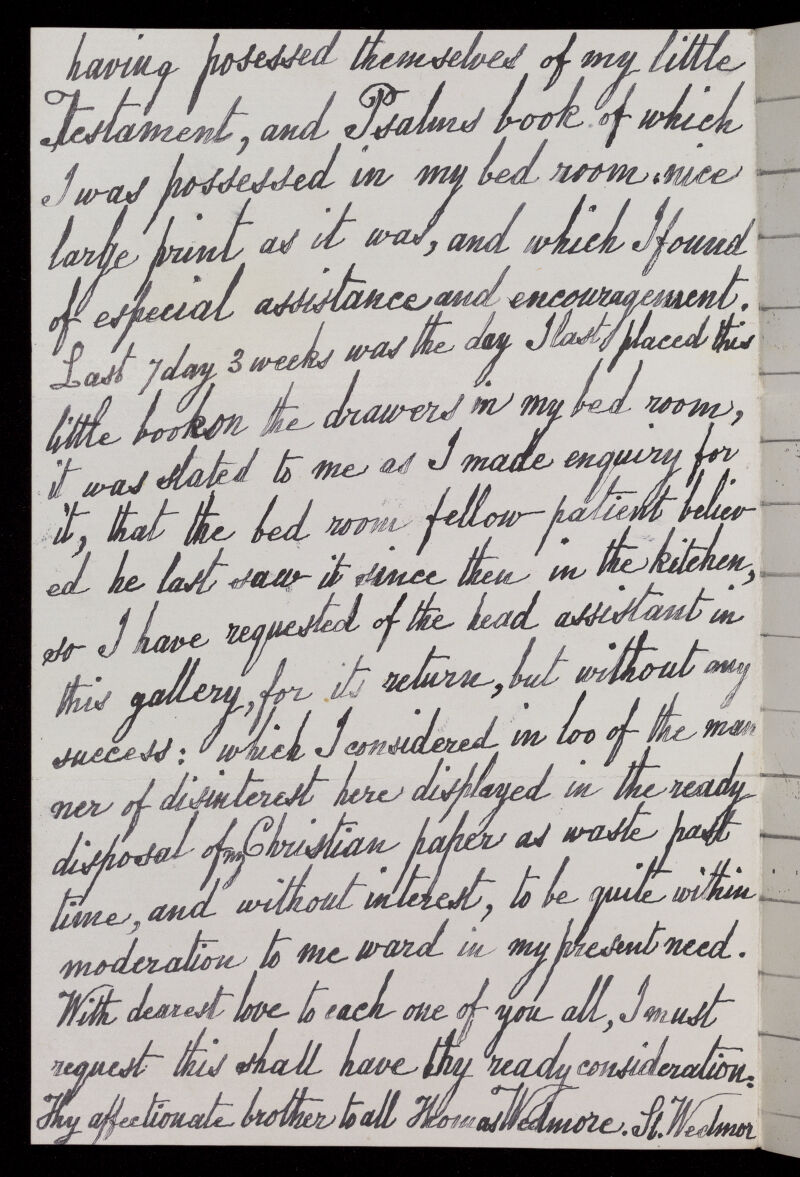 having posessed themselves of my little
Testament, and Psalms book of which
I was possessed in my bed room. nice
large print as it was, and which I found
of especial assistance and encouragement.
Last 7 day 3 weeks was the day I last placed this
little book on the drawers in my bed room,
it was stated to me as I made enquiry for
it, that the bed room fellow patient believ
ed he last saw it since then in the kitchen,
so I have requested of the head assistant in
this gallery, for its return, but without any
success: which I considered in loo of the man
ner of disinterest here displayed in the ready
disposal of my Christian paper as waste past
time, and without interest, to be quite within
moderation to me ward in my present need.
With dearest love to each one of you all, I must
request this shall have thy ready consideration:
Thy affectionate brother to all Thomas Wedmore. St. Wedmor